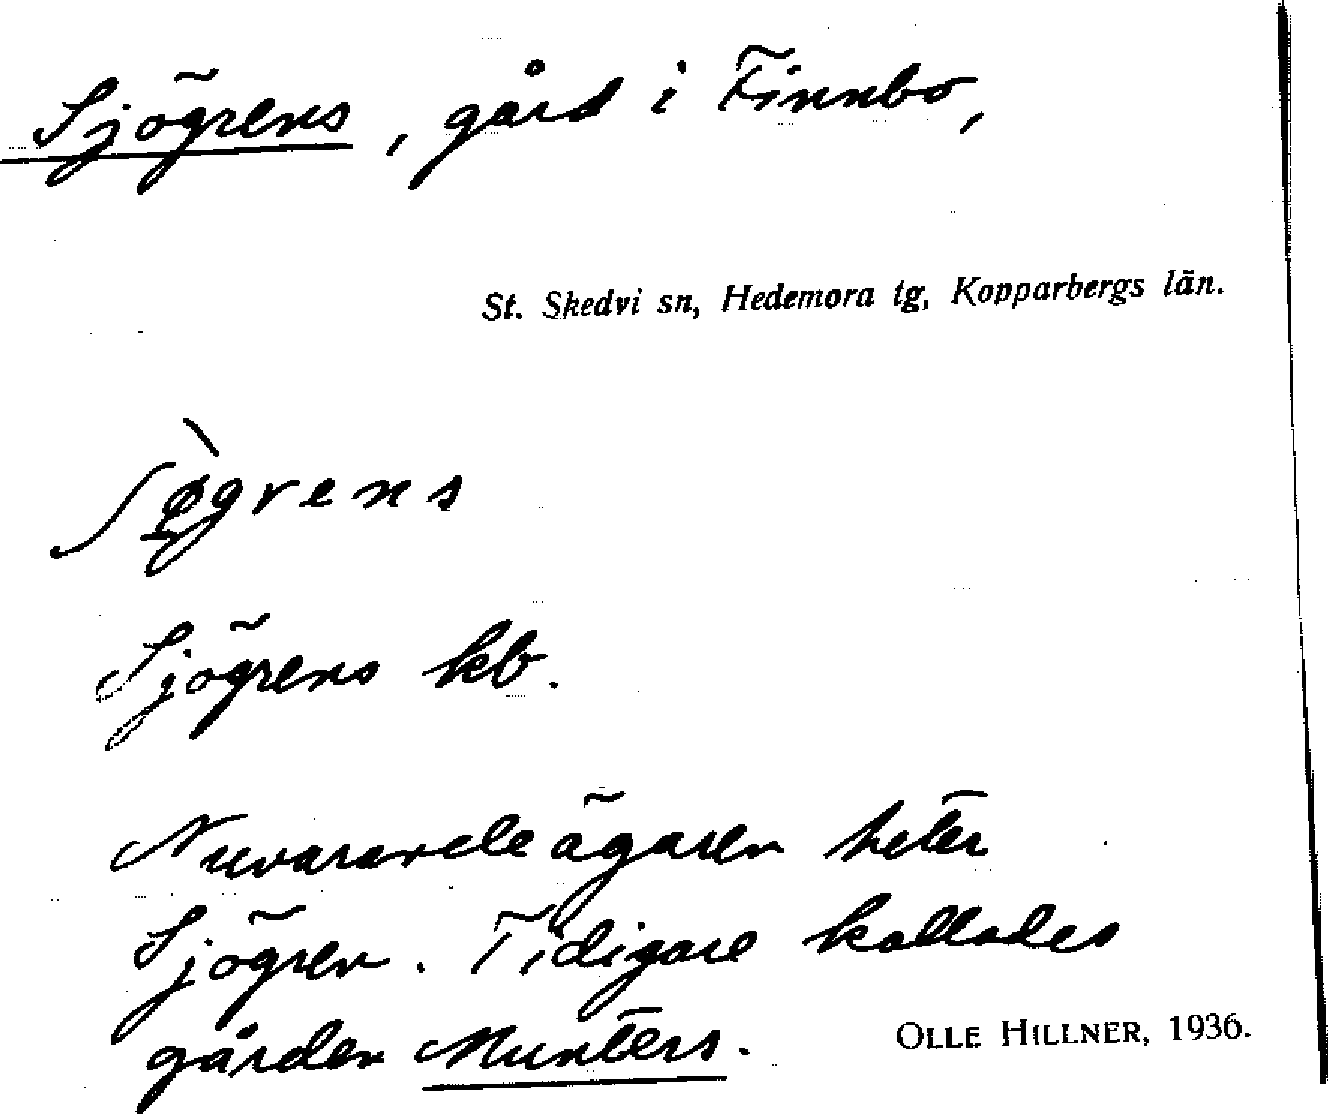 Sjögrens, gård i Finnbo,
St. Skedvi sn, Hedemora tg, Kopparbergs län.
ʃø̀grens
Sjögrens kb.
Nuvarande ägaren heter
Sjögren. Tidigare kallades
gården Munters.
OLLE HILLNER, 1936.